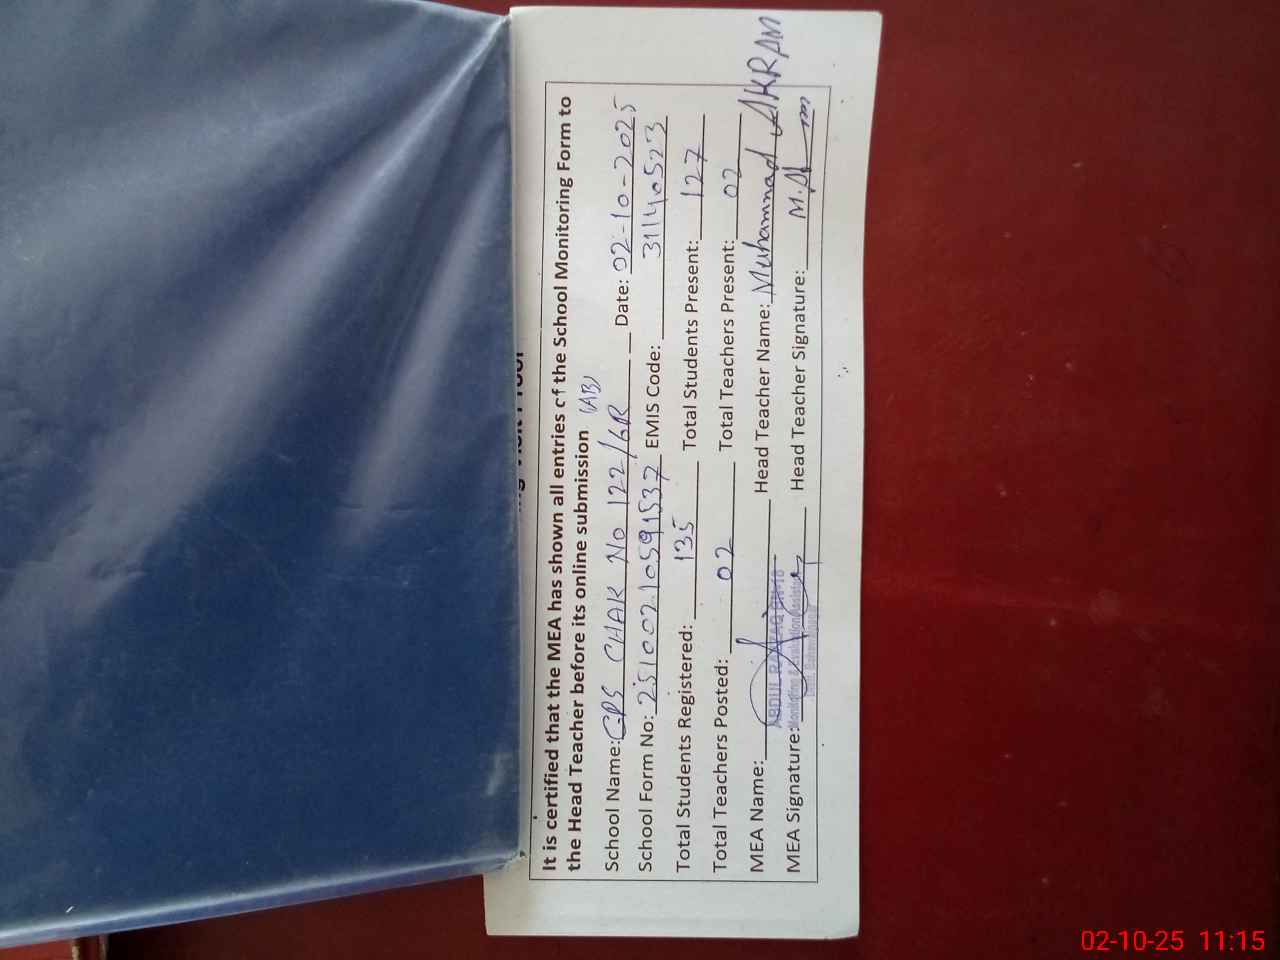 It is certified that the MEA has shown all entries of the School Monitoring Form to
the Head Teacher before its online submission (AB)
School Name: GPS CHAK No 122/6R Date: 02-10-2025
School Form No: 2510021059 1537 EMIS Code: 31140523
Total Students Registered: 135 Total Students Present: 127
Total Teachers Posted: 02 Total Teachers Present: 02
MEA Name: Head Teacher Name: Muhammad AKRAM
ABDUL RAZZAQ
Monitoring & Evaluation Assistant
MEA Signature: Head Teacher Signature:
02-10-25 11:15